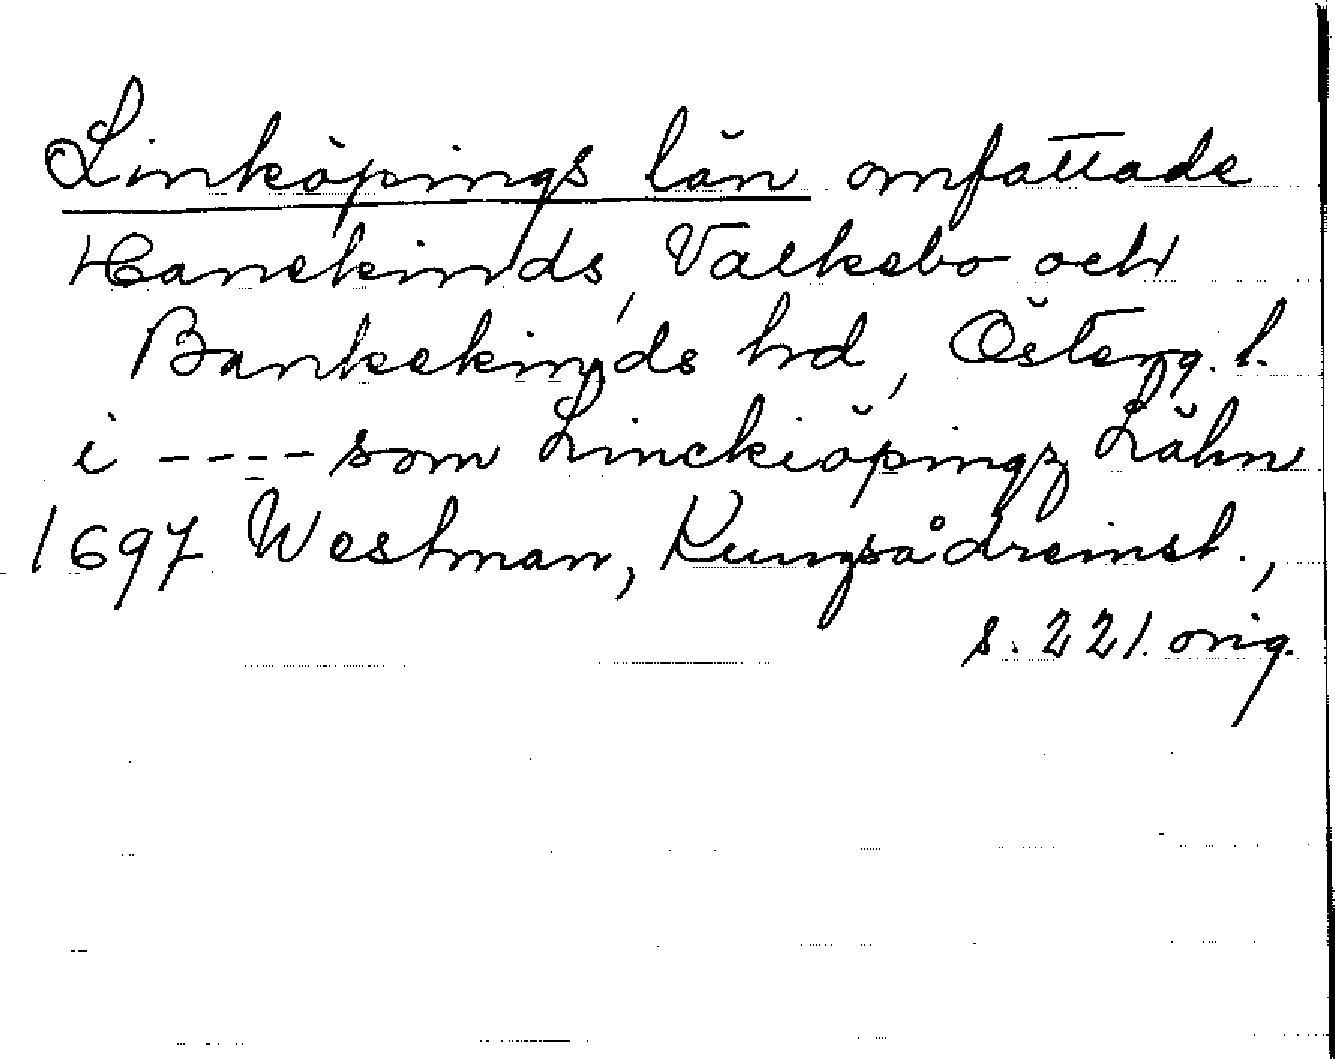 Linköpings län omfattade
Hanekinds, Valkebo och
Bankekinds hrd, Österg. l.
i ---- som Linckiöpingz Lähn
1697 Westman, Kungsådreinst.,
s. 221. orig.